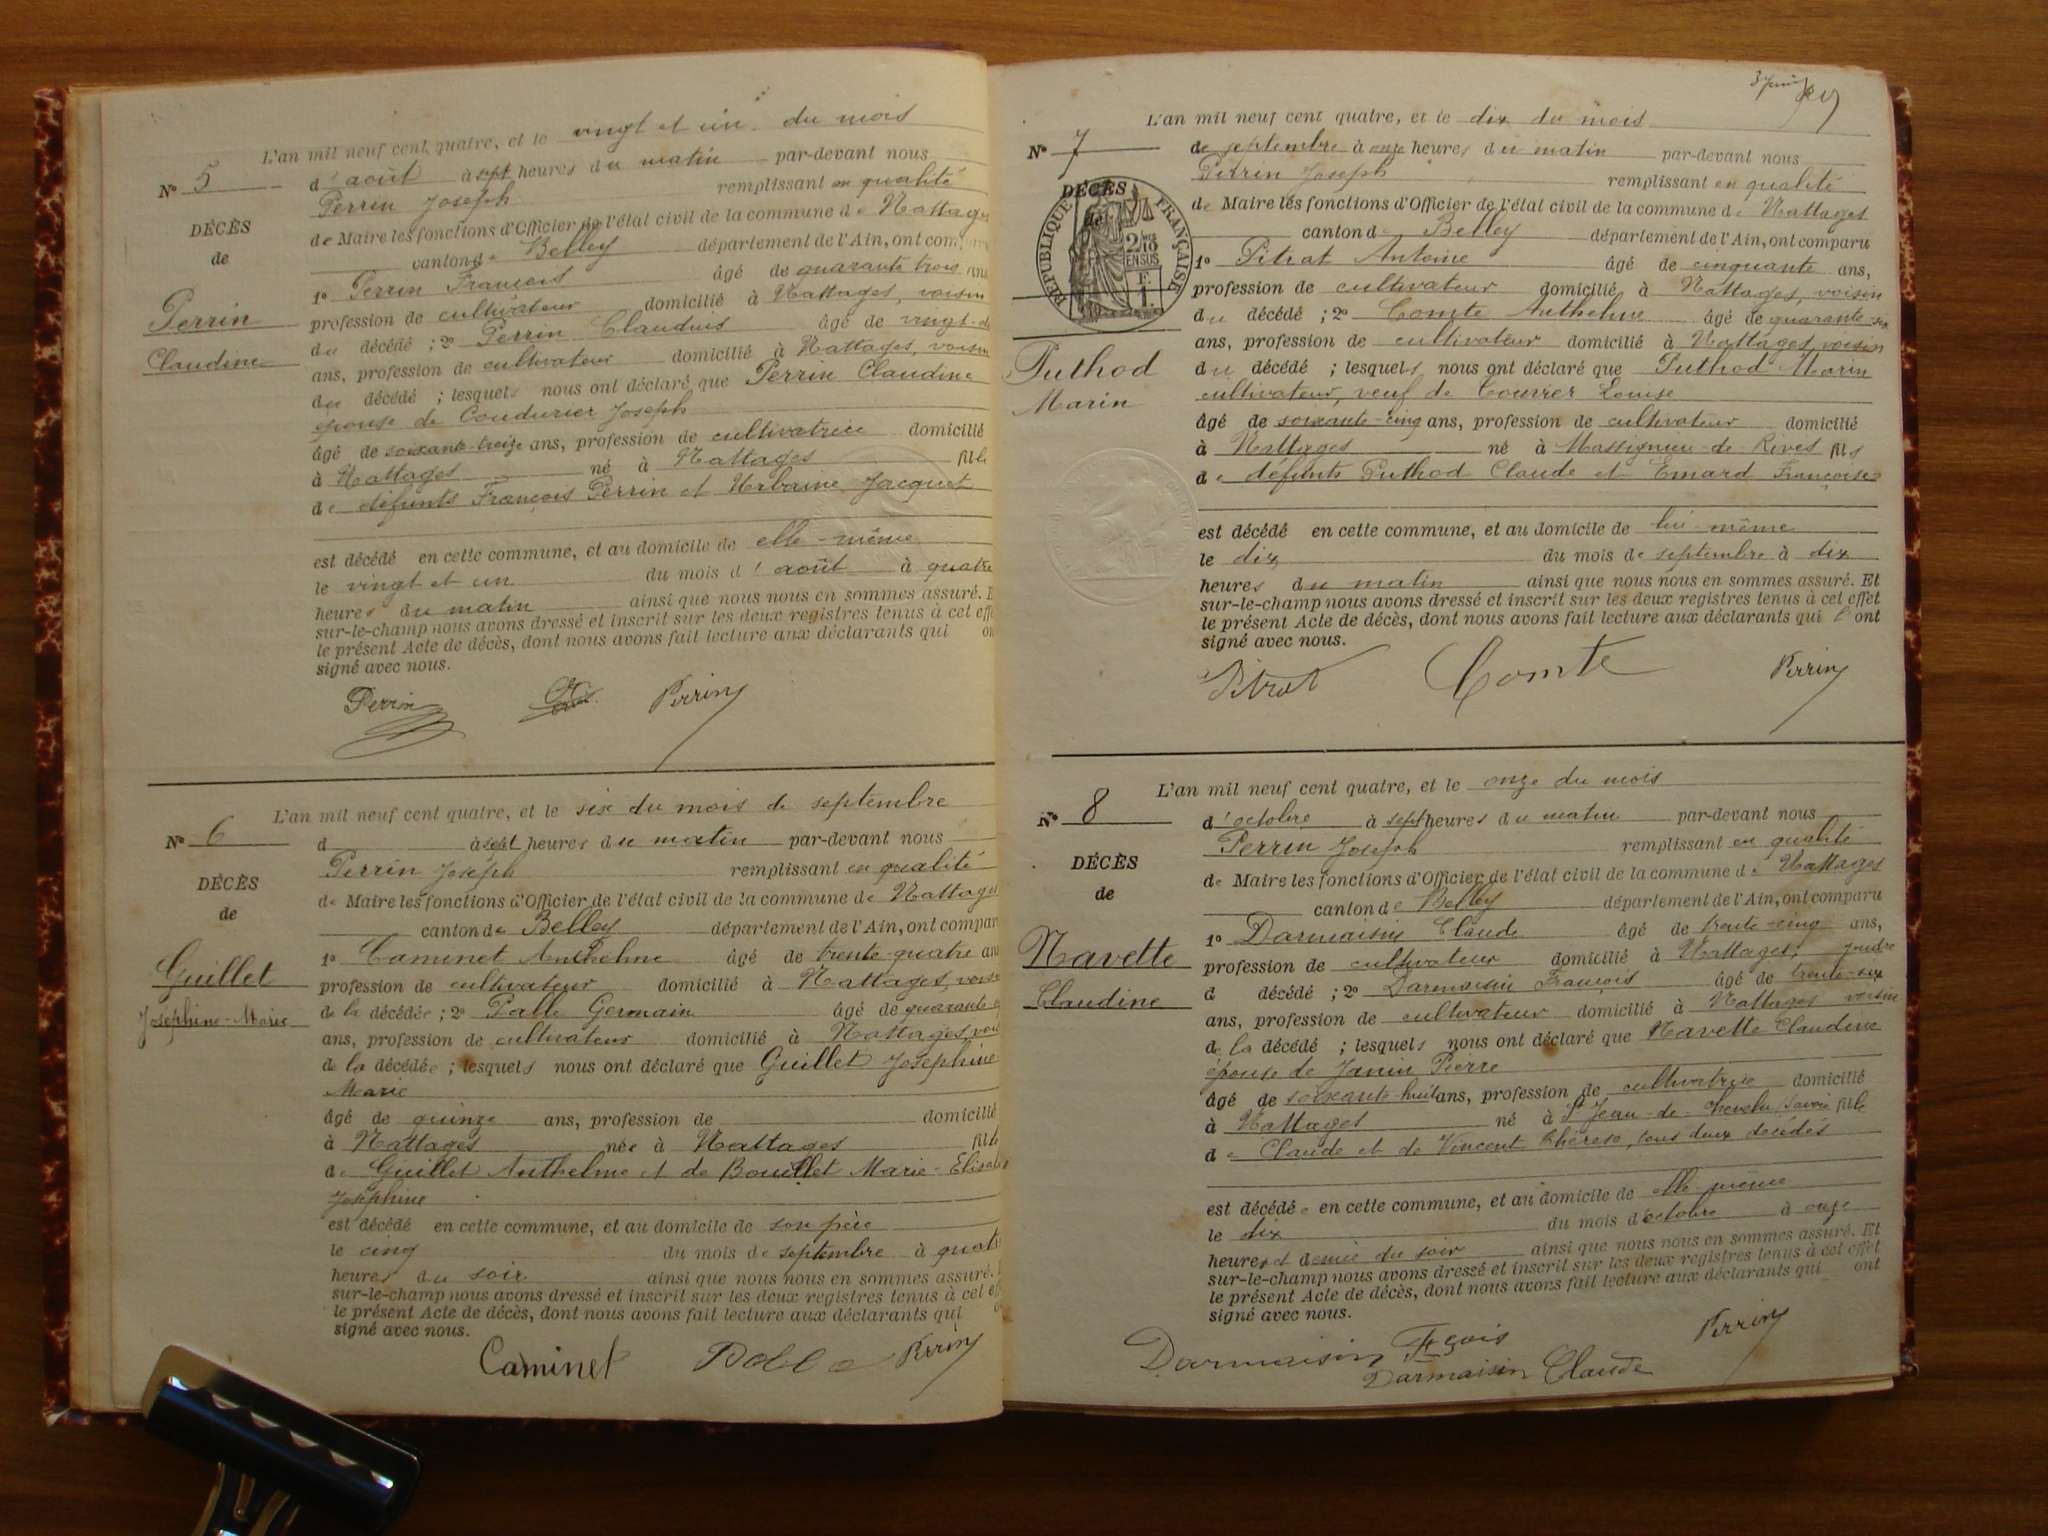 L'an mil neuf cent quatre, et le vingt et un du mois
N° 5
d'août à sept heures du matin par-devant nous
Perrin Joseph remplissant en qualité
DÉCÈS
de Maire les fonctions d'Officier de l'état civil de la commune de Nattages
de
canton de Belley département de l'Ain, ont comparu
1° Perrin François âgé de quarante trois ans
Perrin
profession de cultivateur domicilié à Nattages, voisin
du décédé ; 2° Perrin Claudius âgé de vingt-
Claudine
ans, profession de cultivateur domicilié à Nattages, voisin
du décédé ; lesquels nous ont déclaré que Perrin Claudine
épouse de Coudurier Joseph
âgé de soixante-treize ans, profession de cultivatrice domicilié
à Nattages né à Nattages fille
de défunts François Perrin et Urbaine Jacquet
est décédé en cette commune, et au domicile de elle-même
le vingt et un du mois d'août à quatre
heures du matin ainsi que nous nous en sommes assuré.
sur-le-champ nous avons dressé et inscrit sur les deux registres tenus à cet eff
le présent Acte de décès, dont nous avons fait lecture aux déclarants qui on
signé avec nous.
Perrin Perrin
L'an mil neuf cent quatre, et le six du mois de septembre
N° 6
d à sept heures du matin par-devant nous
Perrin Joseph remplissant en qualité
DÉCÈS
de Maire les fonctions d'Officier de l'état civil de la commune de Nattages
de
canton de Belley département de l'Ain, ont compar
1° Caminet Anthelme âgé de trente-quatre ans
Guillet
profession de cultivateur domicilié à Nattages, voisin
Joséphine-Marie
de la décédée ; 2° Palle Germain âgé de quarante
ans, profession de cultivateur domicilié à Nattages, voi
de la décédée ; lesquels nous ont déclaré que Guillet Joséphine
Marie
âgé de quinze ans, profession de domicilié
à Nattages née à Nattages fille
de Guillet Anthelme et de Bouillet Marie-Elisabet
Joséphine
est décédé en cette commune, et au domicile de son père
le cinq du mois de septembre à quatre
heures du soir ainsi que nous nous en sommes assuré.
sur-le-champ nous avons dressé et inscrit sur les deux registres tenus à cet eff
le présent Acte de décès, dont nous avons fait lecture aux déclarants qui o
signé avec nous.
Caminet Perrin
L'an mil neuf cent quatre, et le dix du mois
N° 7
de septembre à onze heures du matin par-devant nous
Perrin Joseph remplissant en qualité
DÉCÈS
RÉPUBLIQUE FRANÇAISE
de Maire les fonctions d'Officier de l'état civil de la commune de Nattages
canton de Belley département de l'Ain, ont comparu
1° Pitrat Antoine âgé de cinquante ans,
profession de cultivateur domicilié à Nattages, voisin
du décédé ; 2° Comte Anthelme âgé de quarante-six
ans, profession de cultivateur domicilié à Nattages, voisin
Puthod
du décédé ; lesquels nous ont déclaré que Puthod Marin
Marin
cultivateur, veuf de Louise
âgé de soixante-cinq ans, profession de cultivateur domicilié
à Nattages né à Massignieu-de-Rives fils
de défunts Puthod Claude et Emard Françoise
est décédé en cette commune, et au domicile de lui-même
le dix du mois de septembre à dix
heures du matin ainsi que nous nous en sommes assuré. Et
sur-le-champ nous avons dressé et inscrit sur les deux registres tenus à cet effet
le présent Acte de décès, dont nous avons fait lecture aux déclarants qui l'ont
signé avec nous.
Pitrat Comte Perrin
L'an mil neuf cent quatre, et le onze du mois
N° 8
d'octobre à sept heures du matin par-devant nous
Perrin Joseph remplissant en qualité
DÉCÈS
de Maire les fonctions d'Officier de l'état civil de la commune de Nattages
de
canton de Belley département de l'Ain, ont comparu
1° Darmaisin Claude âgé de trente-cinq ans,
Navette
profession de cultivateur domicilié à Nattages, gendre
Claudine
d décédé ; 2° Darmaisin François âgé de trente-six
ans, profession de cultivateur domicilié à Nattages voisin
de la décédé ; lesquels nous ont déclaré que Navette Claudine
épouse de Janin Pierre
âgé de soixante-huit ans, profession de cultivatrice domicilié
à Nattages né à St Jean-de-Chevelu Savoie fille
de Claude et de Vincent Thérèse, tous deux décédés
est décédée en cette commune, et au domicile de elle-même
le dix du mois d'octobre à onze
heures et demie du soir ainsi que nous nous en sommes assuré. Et
sur-le-champ nous avons dressé et inscrit sur les deux registres tenus à cet effet
le présent Acte de décès, dont nous avons fait lecture aux déclarants qui ont
signé avec nous.
Darmaisin Fçois Perrin
Darmaisin Claude